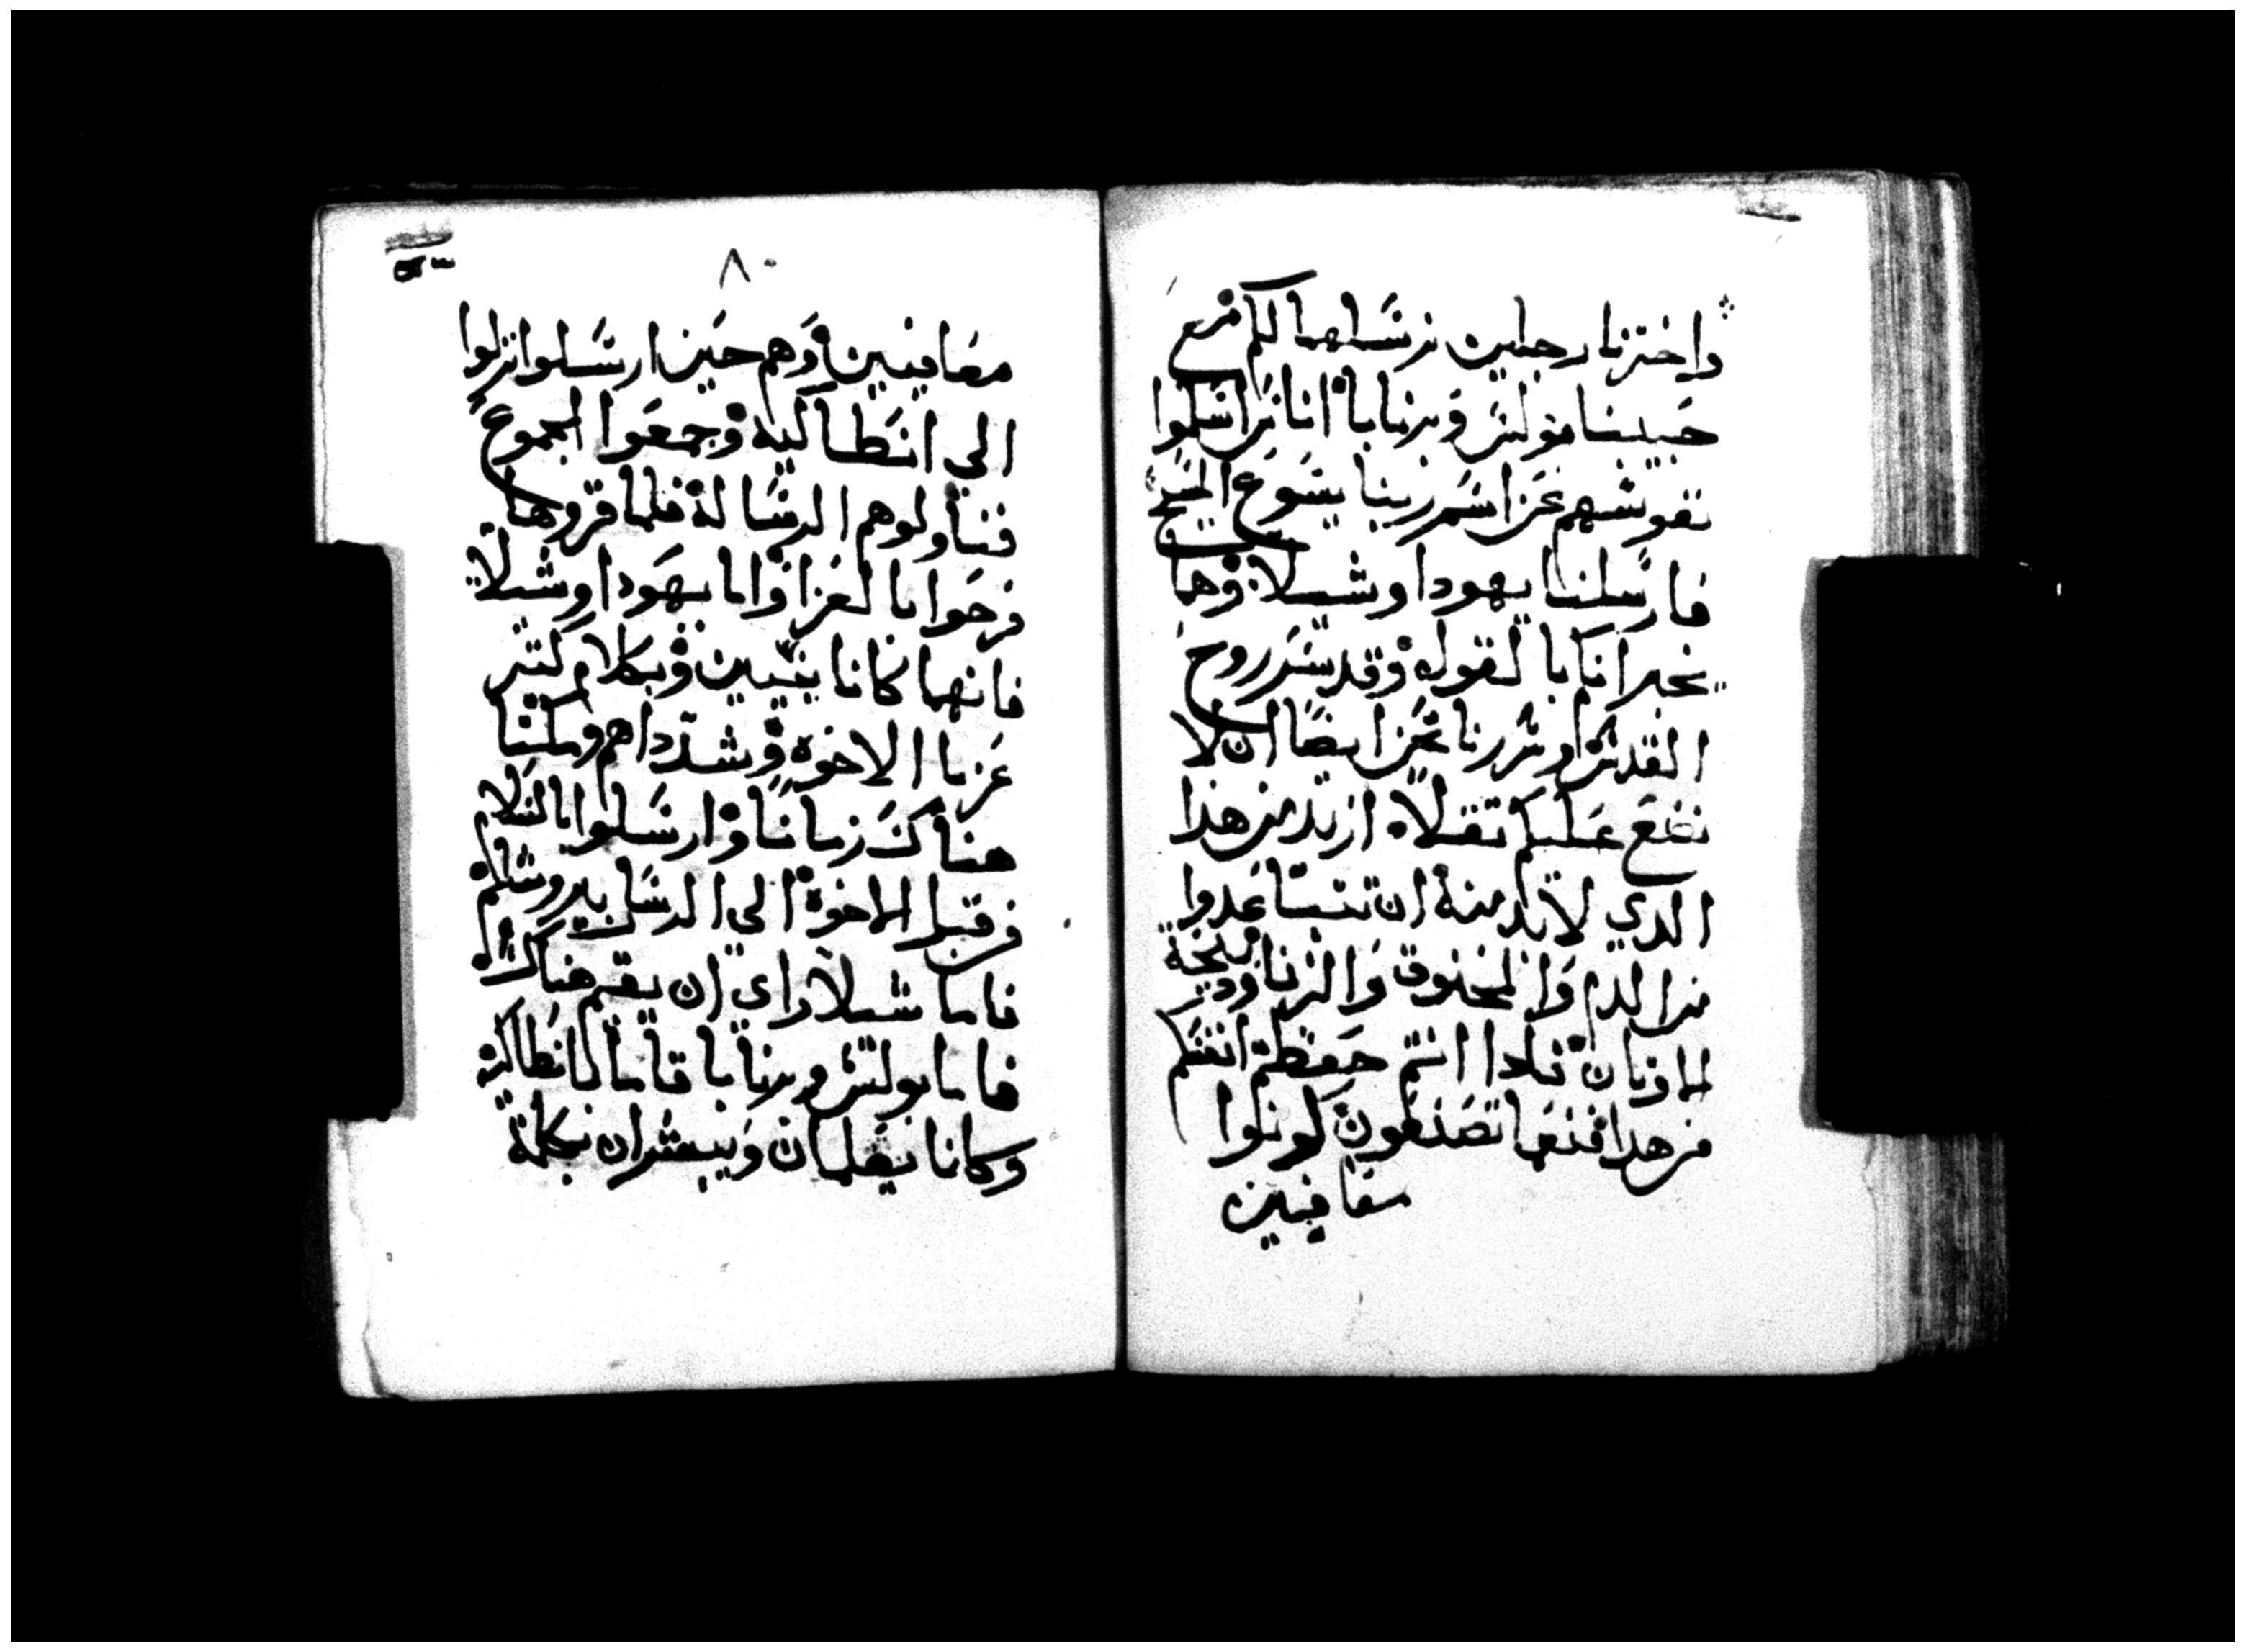 واخترنا رجلين نرسلهما اليكم مع
حبيبنا بولس وبرنابا اناس اسلوا
نفوسهم عن اسم ربنا يسوع المسيح
فارسلنا يهودا وشيلا وهما
يخبرانكم بالقول وقد سر روح
القدس وسررنا نحن ايضا ان لا
نضع عليكم ثقلا ازيد من هذا
الدي لابد منه ان تتباعدوا
من الدم والمخنوق والزنا وذبيحة
الاوثان فادا انتم حفظتم انفسكم
من هدا فنعما تصنعون كونوا
معافيين
٨٠
معافيين وهم حين ارسلوا نزلوا
الى انطاكيه وجمعوا الجموع
فناولوهم الرساله فلما قروها
فرحوا بالعزا واما يهودا وشيلا
فانهما كانا نبيين وبكلام كتير
عزيا الاخوه وشدداهم ومكثا
هناك زمانا وارسلوا بالسلام
من قبل الاخوة الى الرسل بيروشليم
فاما شيلا راى ان يقيم هناك
فاما بولس وبرنابا قاما بانطاكيه
وكانا يعلمان ويبشران بكلمة